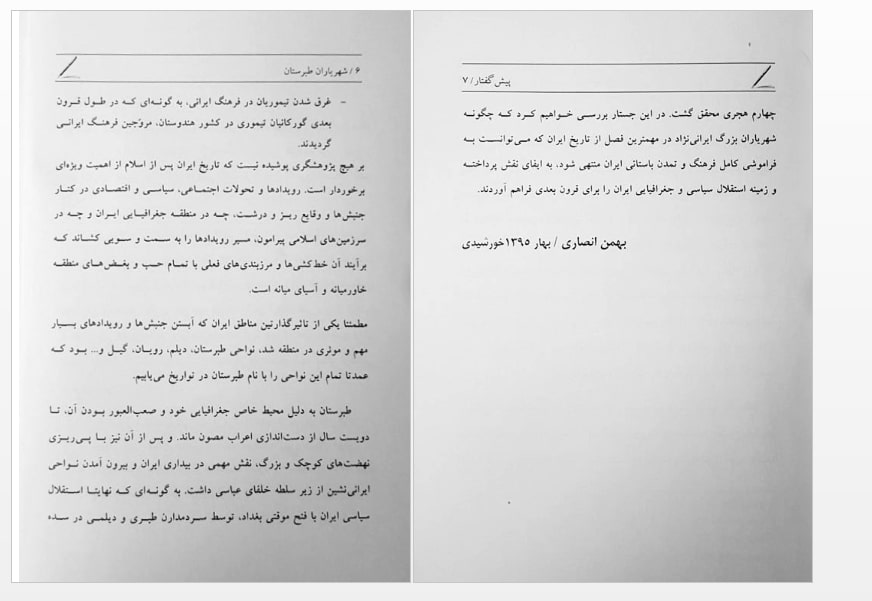 ۶ / شهریاران طبرستان
- غرق شدن تیموریان در فرهنگ ایرانی، به گونه‌ای که در طول قرون
بعدی گورکانیان تیموری در کشور هندوستان، مروّجین فرهنگ ایرانی
گردیدند.
بر هیچ پژوهشگری پوشیده نیست که تاریخ ایران پس از اسلام از اهمیت ویژه‌ای
برخوردار است. رویدادها و تحولات اجتماعی، سیاسی و اقتصادی در کنار
جنبش‌ها و وقایع ریز و درشت، چه در منطقه جغرافیایی ایران و چه در
سرزمین‌های اسلامی پیرامون، مسیر رویدادها را به سمت و سویی کشاند که
برآیند آن خط‌کشی‌ها و مرزبندی‌های فعلی با تمام حب و بغض‌های منطقه
خاورمیانه و آسیای میانه است.
مطمئنا یکی از تاثیرگذارترین مناطق ایران که آبستن جنبش‌ها و رویدادهای بسیار
مهم و موثری در منطقه شد، نواحی طبرستان، دیلم، رویان، گیل و... بود که
عمدتا تمام این نواحی را با نام طبرستان در تواریخ می‌یابیم.
طبرستان به دلیل محیط خاص جغرافیایی خود و صعب‌العبور بودن آن، تا
دویست سال از دست‌اندازی اعراب مصون ماند. و پس از آن نیز با پی‌ریزی
نهضت‌های کوچک و بزرگ، نقش مهمی در بیداری ایران و بیرون آمدن نواحی
ایرانی‌نشین از زیر سلطه خلفای عباسی داشت. به گونه‌ای که نهایتا استقلال
سیاسی ایران با فتح موقتی بغداد، توسط سردمدارن طبری و دیلمی در سده
پیش گفتار / ۷
چهارم هجری محقق گشت. در این جستار بررسی خواهیم کرد که چگونه
شهریاران بزرگ ایرانی‌نژاد در مهمترین فصل از تاریخ ایران که می‌توانست به
فراموشی کامل فرهنگ و تمدن باستانی ایران منتهی شود، به ایفای نقش پرداخته
و زمینه استقلال سیاسی و جغرافیایی ایران را برای قرون بعدی فراهم آوردند.
بهمن انصاری / بهار ۱۳۹۵ خورشیدی